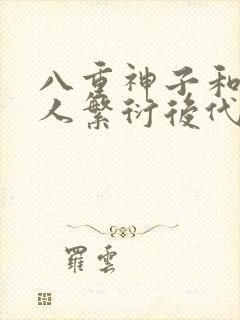 八重神子和
人繁衍後代
羅雲